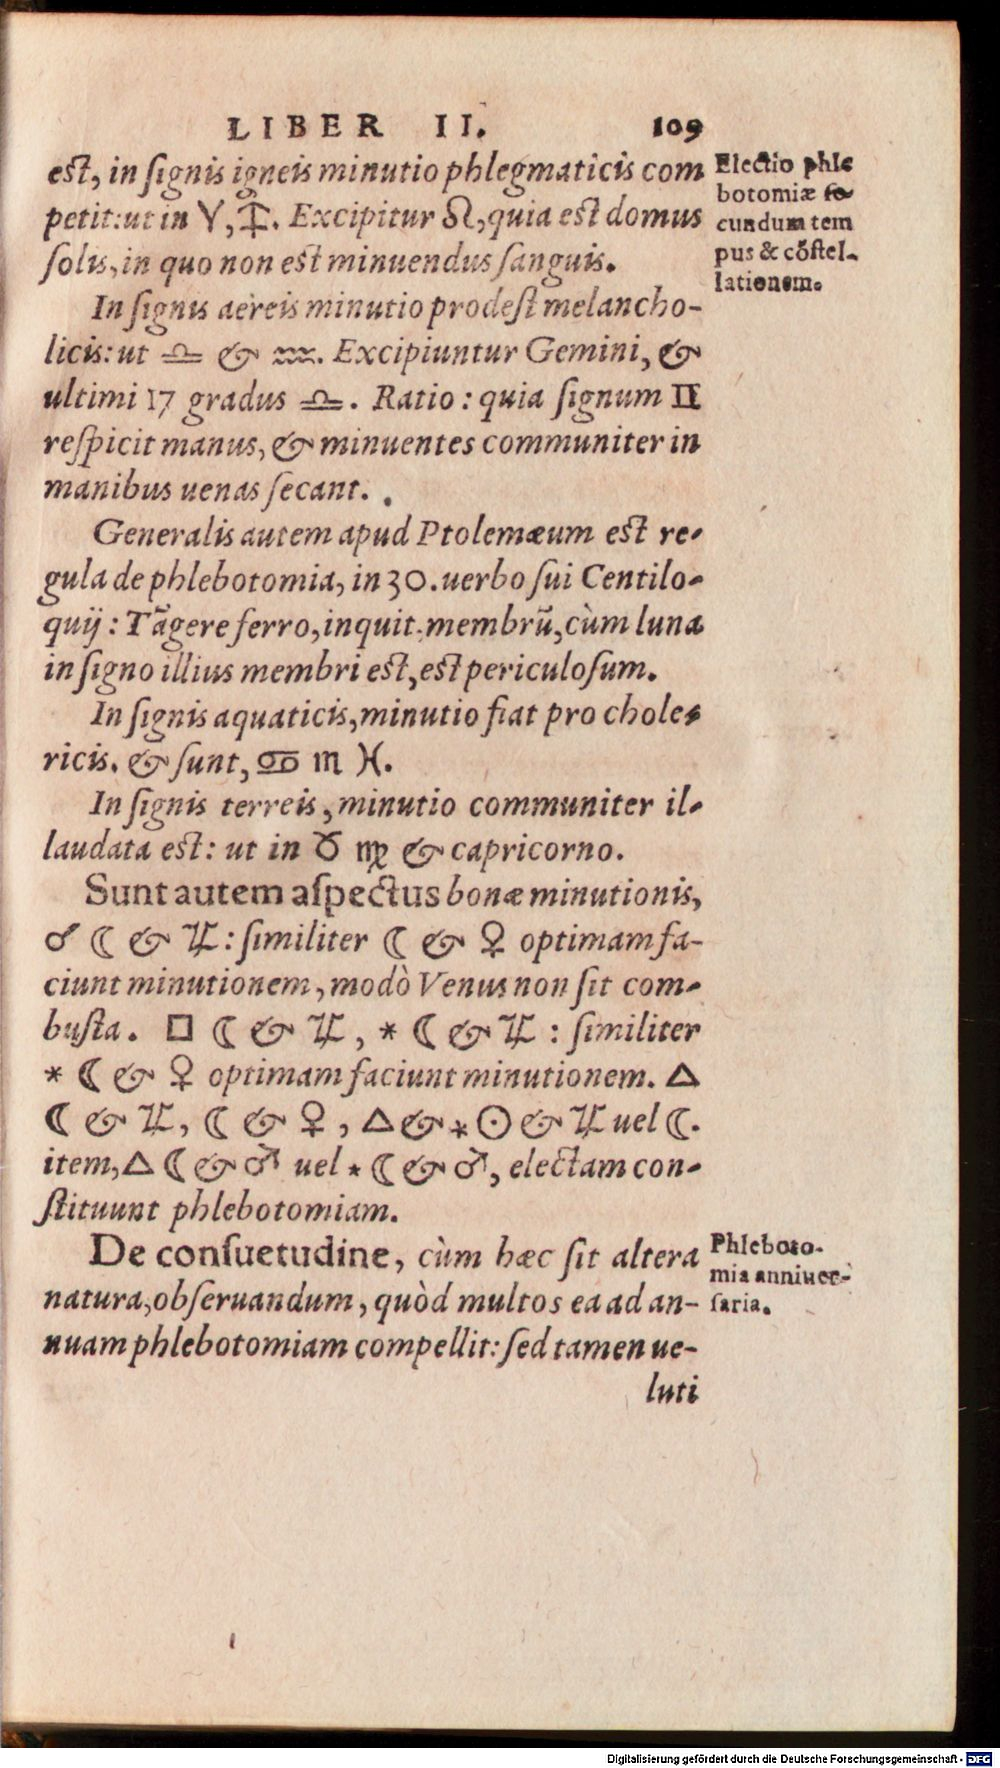 LIBER II. 109
est, in signis igneis minutio phlegmaticis com
petit: ut in ♈, ♐. Excipitur ♌, quia est domus
solis, in quo non est minuendus sanguis.
In signis aëreis minutio prodest melancho-
licis: ut ♎ & ♒. Excipiuntur Gemini, &
ultimi 17 gradus ♎. Ratio: quia signum ♊
respicit manus, & minuentes communiter in
manibus uenas secant.
Generalis autem apud Ptolemæum est re-
gula de phlebotomia, in 30. uerbo sui Centilo-
quij: Tãgere ferro, inquit, membrũ, cùm luna
in signo illius membri est, est periculosum.
In signis aquaticis, minutio fiat pro chole-
ricis. & sunt, ♋ ♏ ♓.
In signis terreis, minutio communiter il-
laudata est: ut in ♉ ♍ & capricorno.
Sunt autem aspectus bonæ minutionis,
☌ ☾ & ♃: similiter ☾ & ♀ optimam fa-
ciunt minutionem, modò Venus non sit com-
busta. □ ☾ & ♃, * ☾ & ♃: similiter
* ☾ & ♀ optimam faciunt minutionem. △
☾ & ♃, ☾ & ♀, △ & * ☉ & ♃ uel ☾.
item, △ ☾ & ♂ uel * ☾ & ♂, electam con-
stituunt phlebotomiam.
De consuetudine, cùm hæc sit altera
natura, obseruandum, quòd multos ea ad an-
nuam phlebotomiam compellit: sed tamen ue-
luti
Electio phle
botomiæ se-
cundum tem
pus & cõstel-
lationem.
Phleboto-
mia anniuer-
saria.
Digitalisierung gefördert durch die Deutsche Forschungsgemeinschaft - DFG